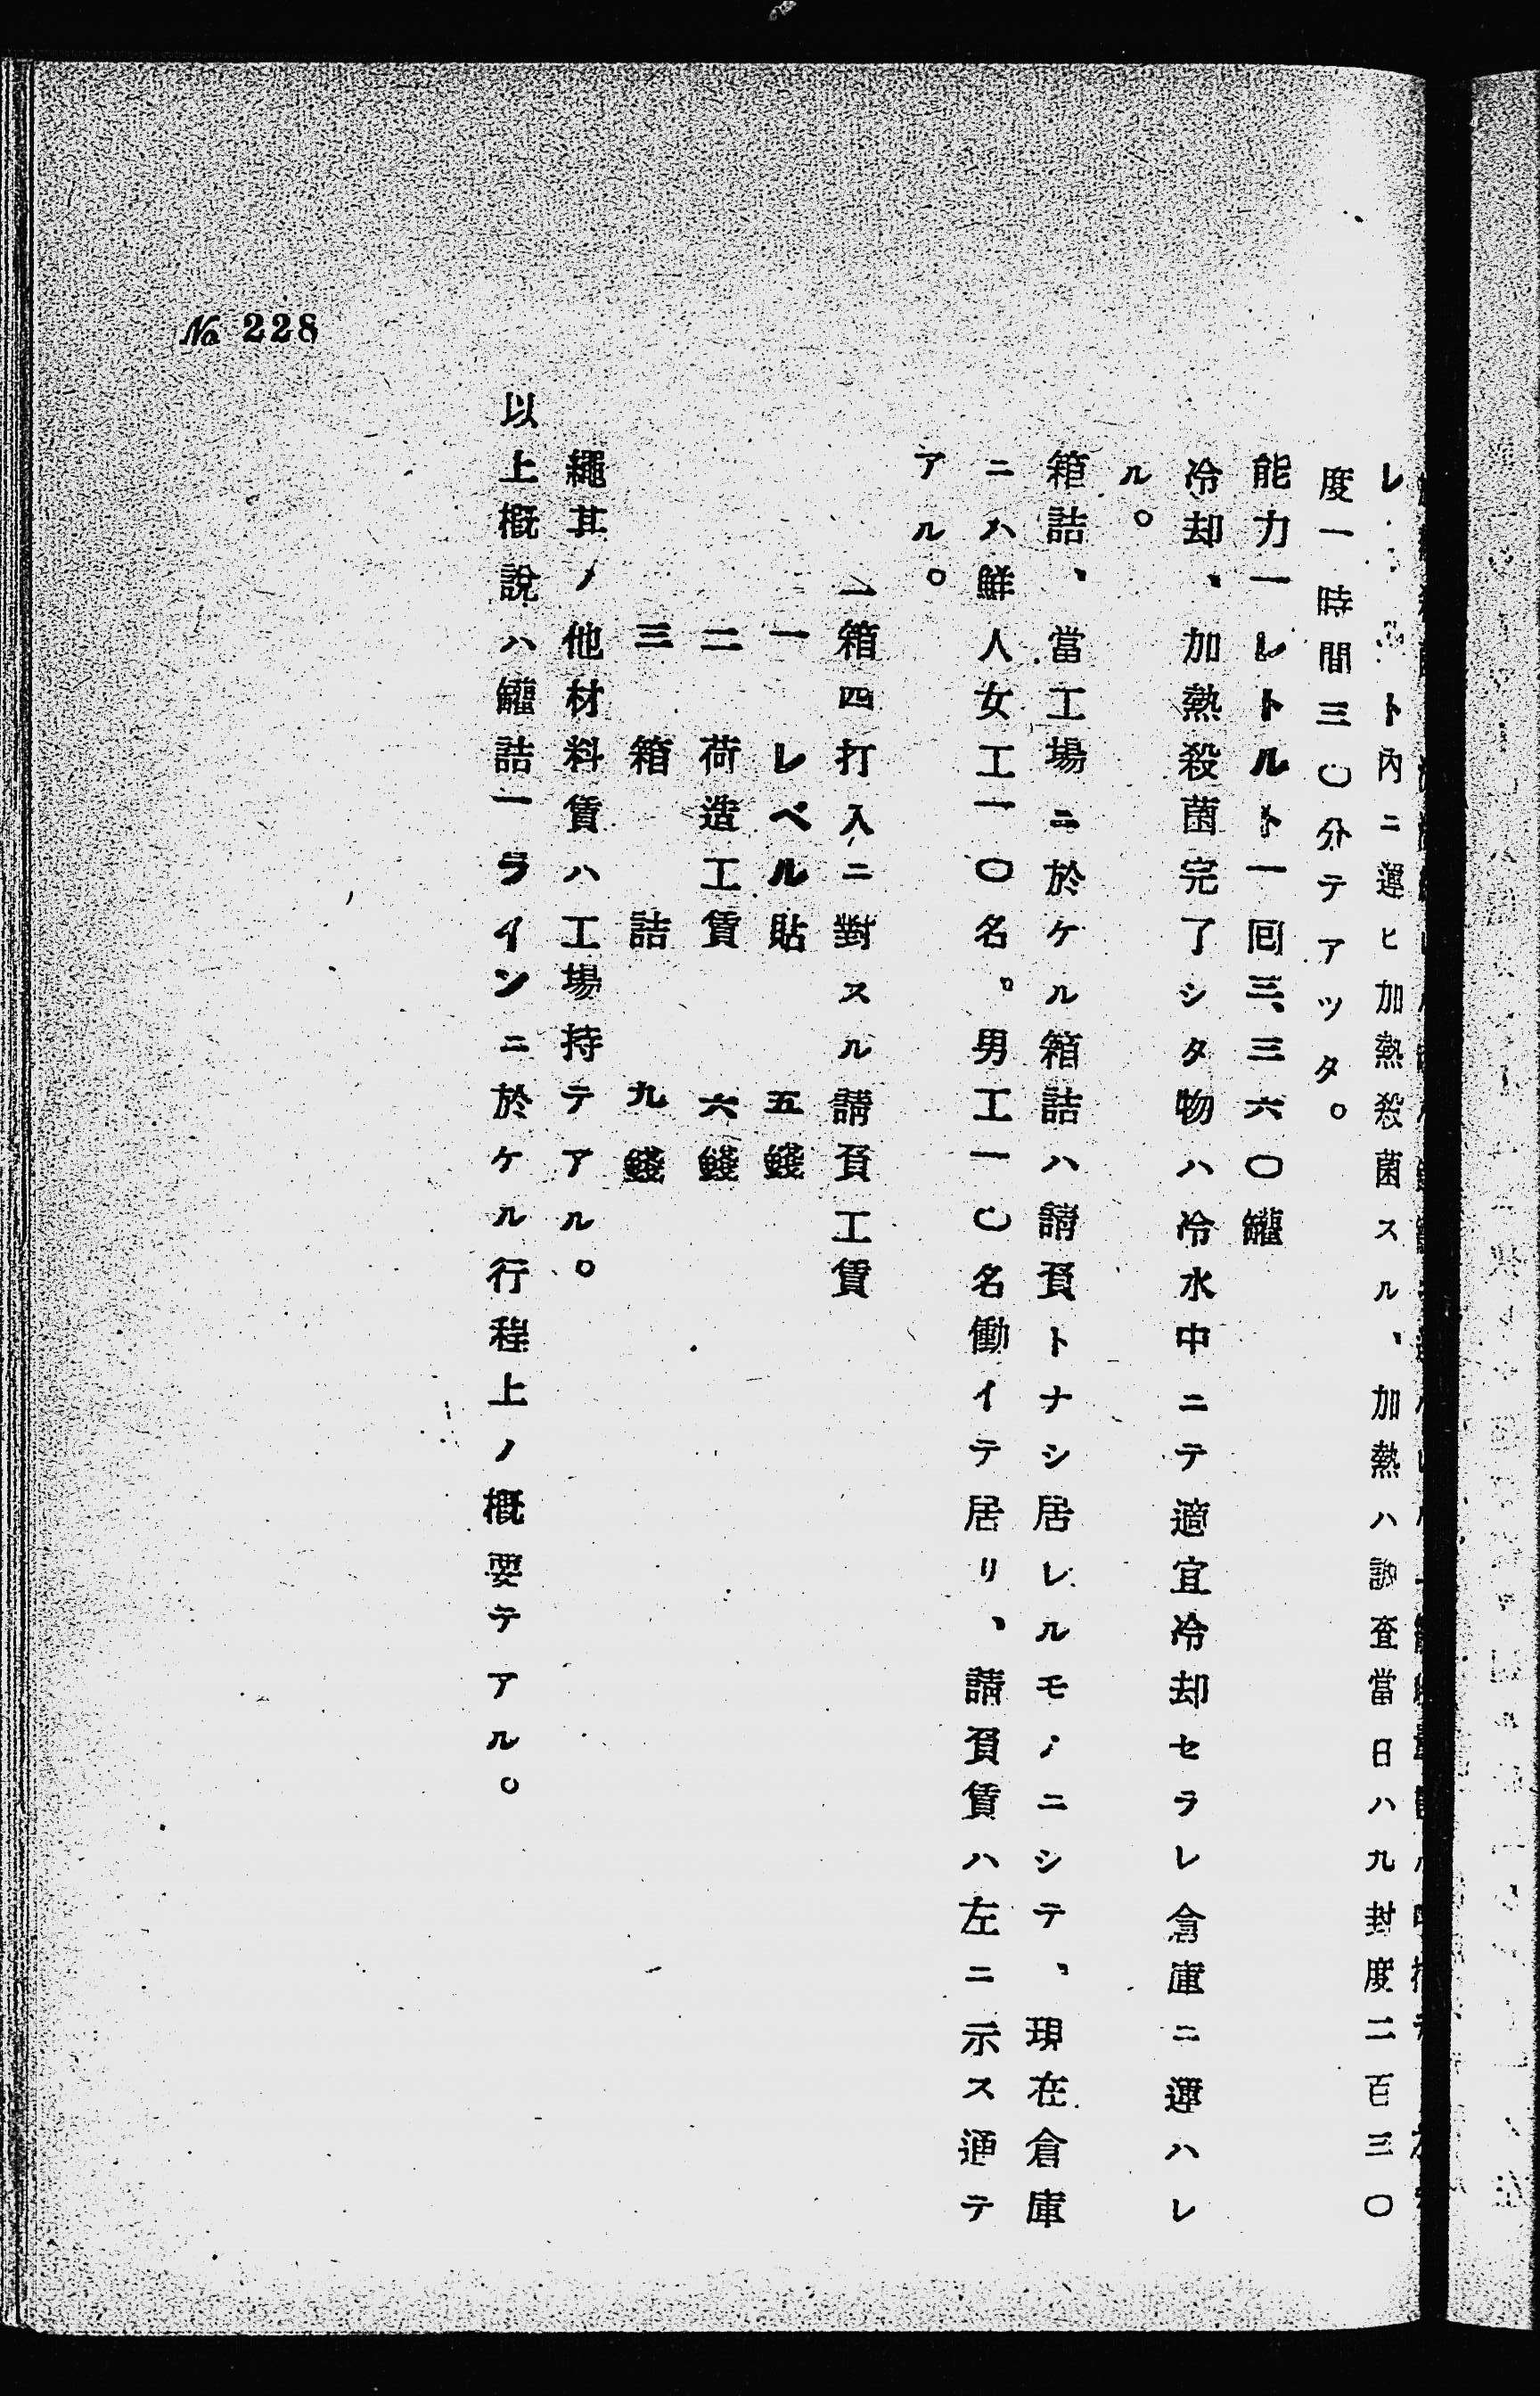 レ トルト內ニ運ヒ加熱殺菌スル、加熱ハ調査當日ハ九封度二百三〇
度一時間三〇分テアツタ。
能力一レトルト一回三、三六〇罐
冷却、加熱殺菌完了シタ物ハ冷水中ニテ適宜冷却セラレ倉庫ニ運ハレ
ル。
箱詰、當工場ニ於ケル箱詰ハ請負トナシ居レルモノニシテ、現在倉庫
ニハ鮮人女工一〇名。男工一〇名働イテ居リ、請負賃ハ左ニ示ス通テ
アル。
一箱四打入ニ對スル請負工賃
一 レベル貼 五錢
二 荷造工賃 六錢
三 箱詰 九錢
繩其ノ他材料賃ハ工場持テアル。
以上概說ハ罐詰一ラインニ於ケル行程上ノ概要テアル。
№ 228